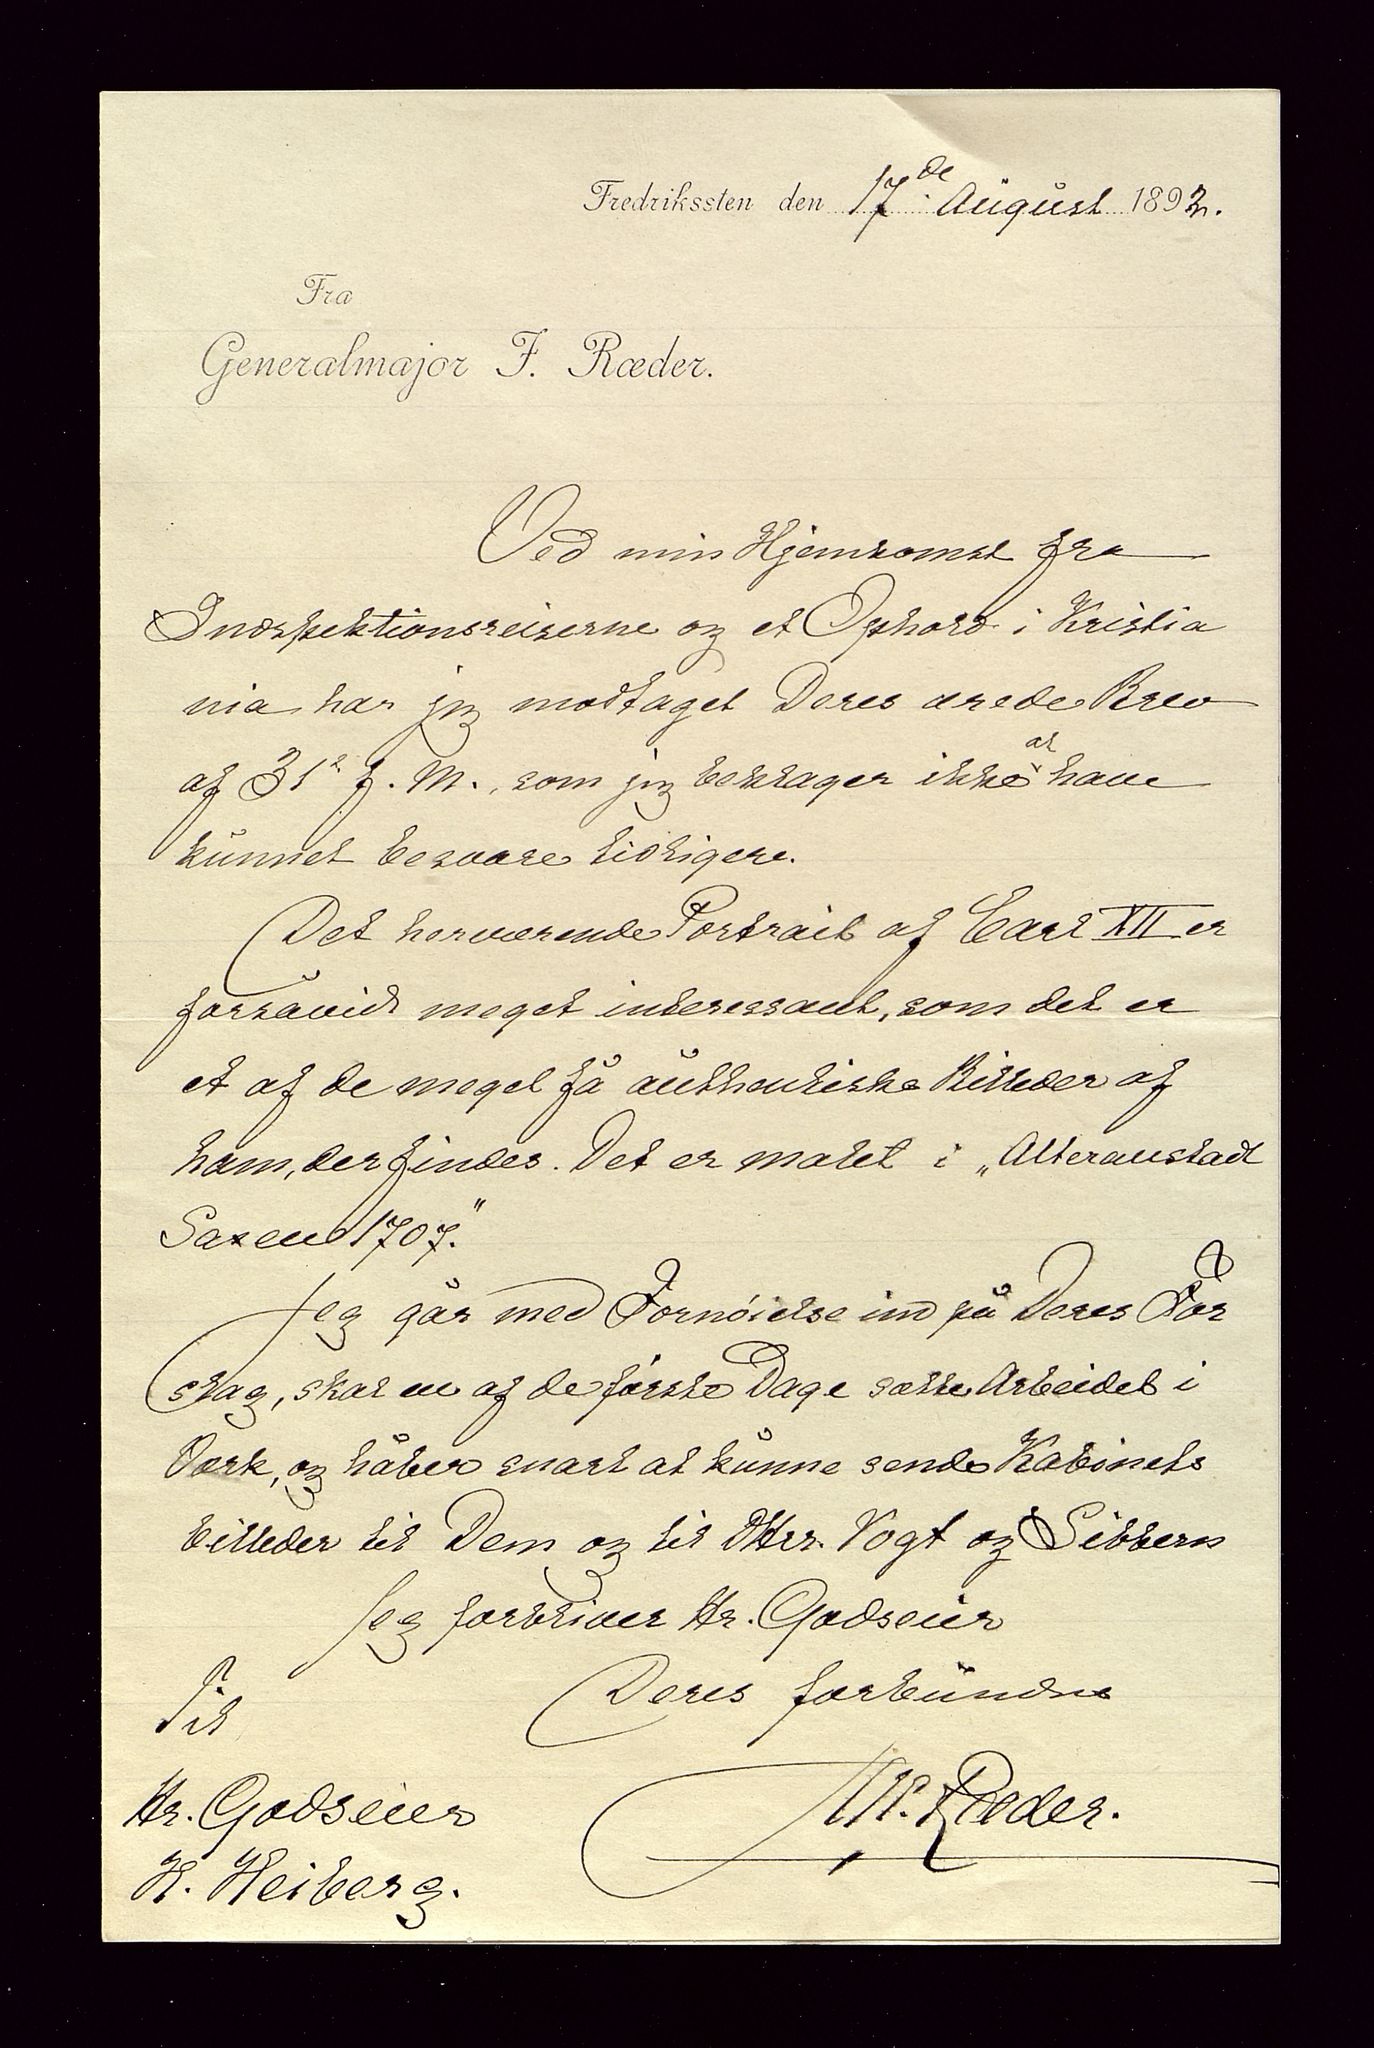 Fredrikssten den 17de August 1892.
Fra
Generalmajor F. Ræder.
Ved min Hjemkomst fra
Indspektionsreiserne og et Ophold i Kristia
nia har jeg modtaget Deres ærede Brev
af 31te f. M., som jeg beklager ikke at have
kunnet besvare tidligere.
Det herværende Portrait af Carl XII er
forsåvidt meget interessant, som det er
et af de meget få authentiske Billeder af
ham, der findes. Det er malet i "Alteranstadt
Saxen 1707."
Jeg går med Fornöielse ind på Deres For
slag, skal en af de første Dage sætte Arbeidet i
Værk, og håber snart at kunne sende Kabinets
billeder til Dem og til DHrr. Vogt og Sibbern
Jeg forbliver Hr. Godseier
Deres forbundne
Ræder.
Til
Hr. Godseier
H. Heiberg.